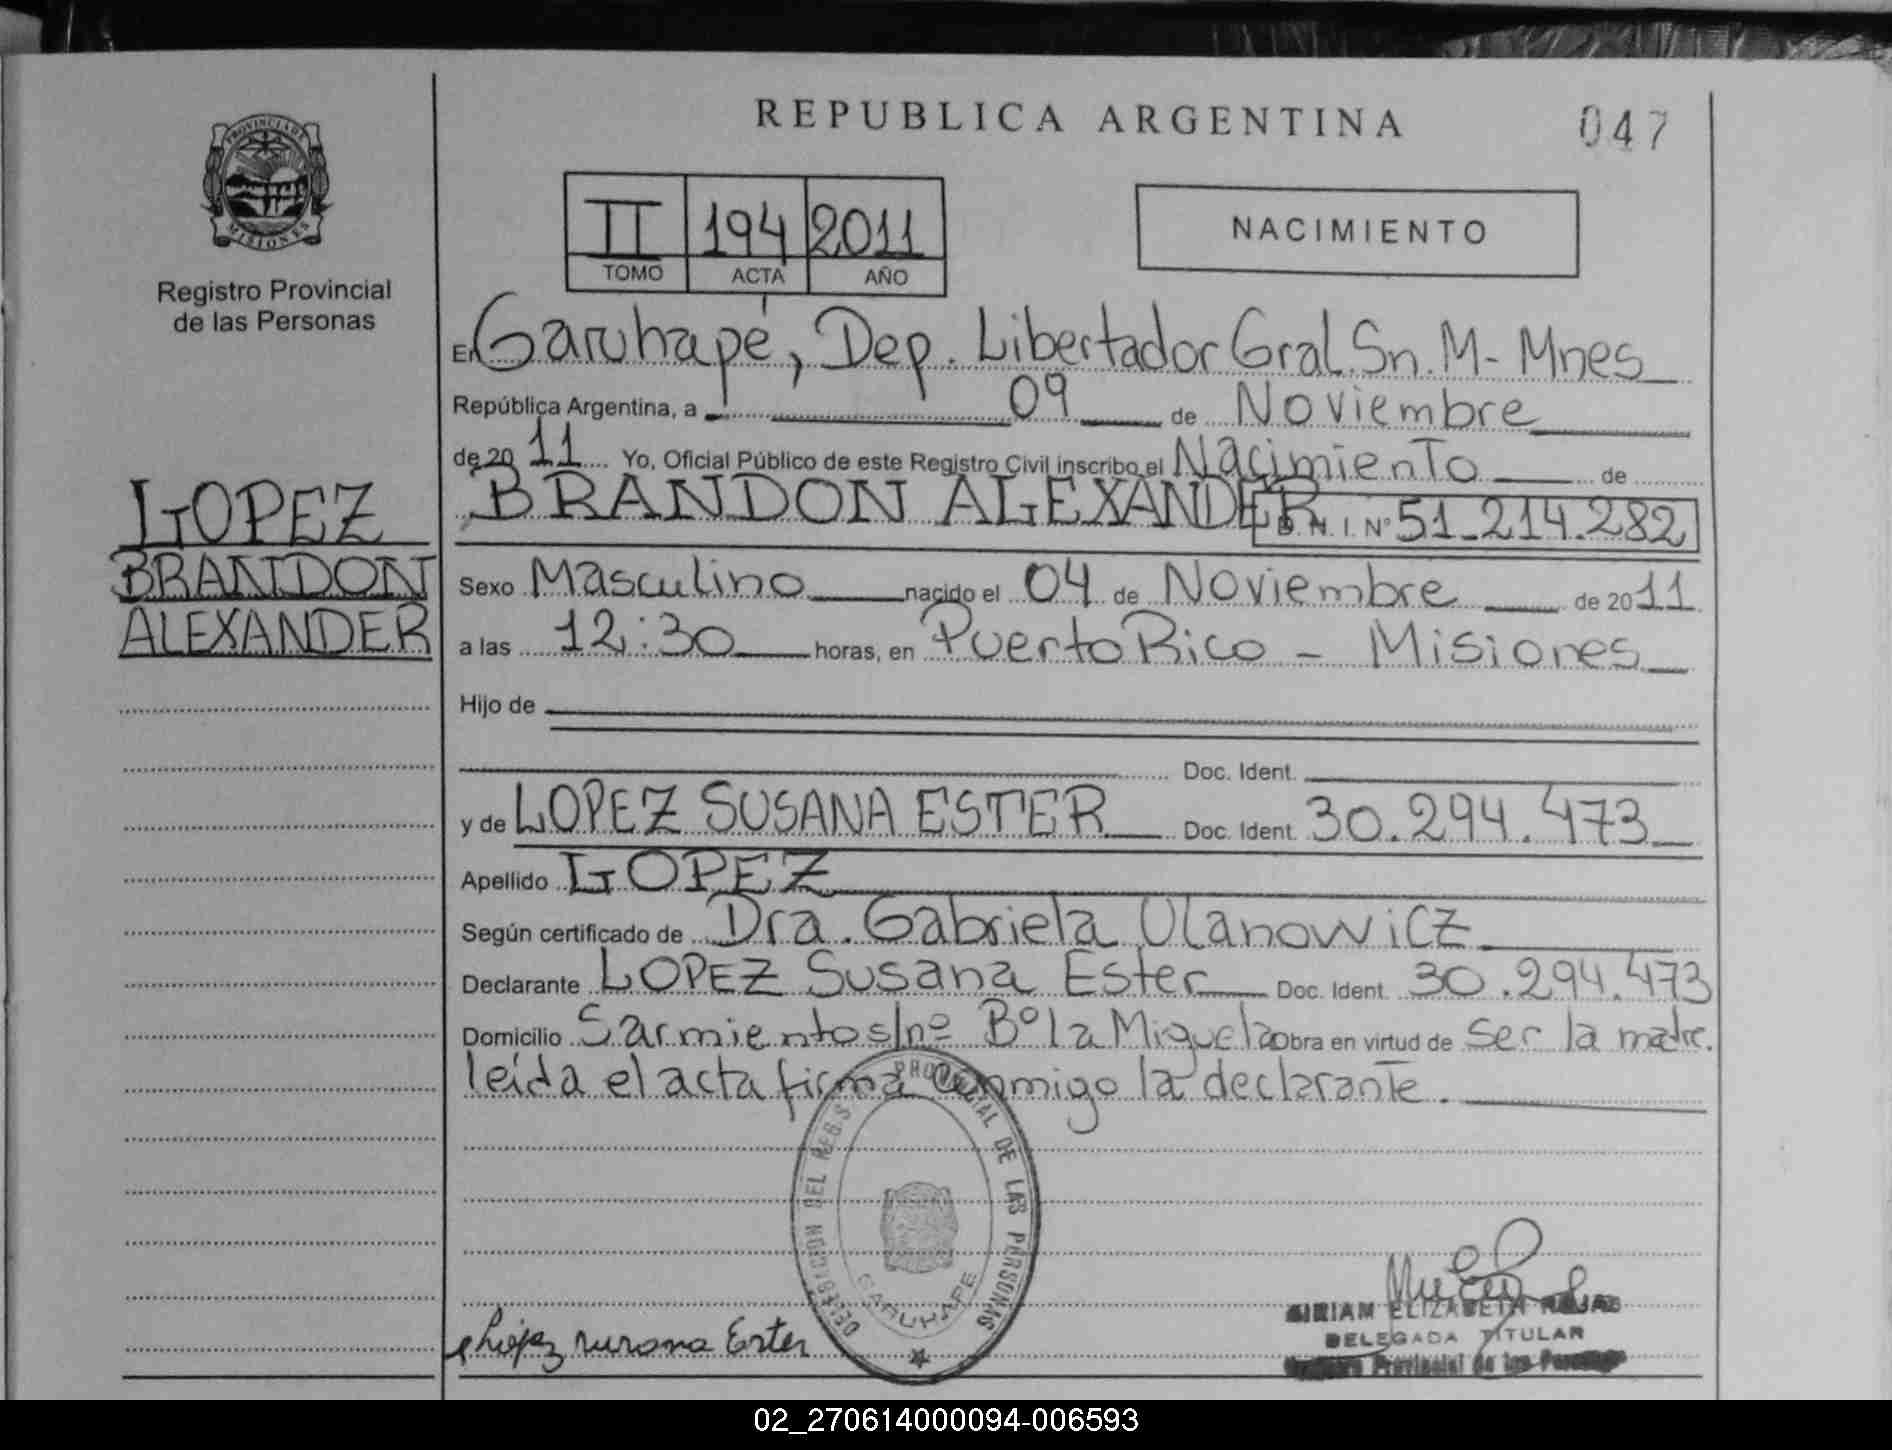 REPUBLICA ARGENTINA
047
PROVINCIA DE
MISIONES
Registro Provincial
de las Personas
II 194 2011
TOMO ACTA AÑO
NACIMIENTO
En Garuhapé, Dep. Libertador Gral. Sn. M - Mnes
República Argentina, a 09 de Noviembre
de 20 11 Yo, Oficial Público de este Registro Civil inscribo el Nacimiento de
BRANDON ALEXANDER D.N.I. Nº 51.214.282
LOPEZ
BRANDON
ALEXANDER
Sexo Masculino nacido el 04 de Noviembre de 2011
a las 12:30 horas, en Puerto Rico - Misiones
Hijo de
Doc. Ident.
y de LOPEZ SUSANA ESTER Doc. Ident. 30.294.473
Apellido LOPEZ
Según certificado de Dra. Gabriela Ulanowicz
Declarante LOPEZ Susana Ester Doc. Ident. 30.294.473
Domicilio Sarmiento s/nº Bº la Miguela obra en virtud de ser la madre.
leída el acta firma conmigo la declarante.
PROVINCIAL DE LAS PERSONAS
GARUHAPE
López Susana Ester
MIRIAM ELIZABETH ROJAS
DELEGADA TITULAR
Provincial de las Personas
02_270614000094-006593